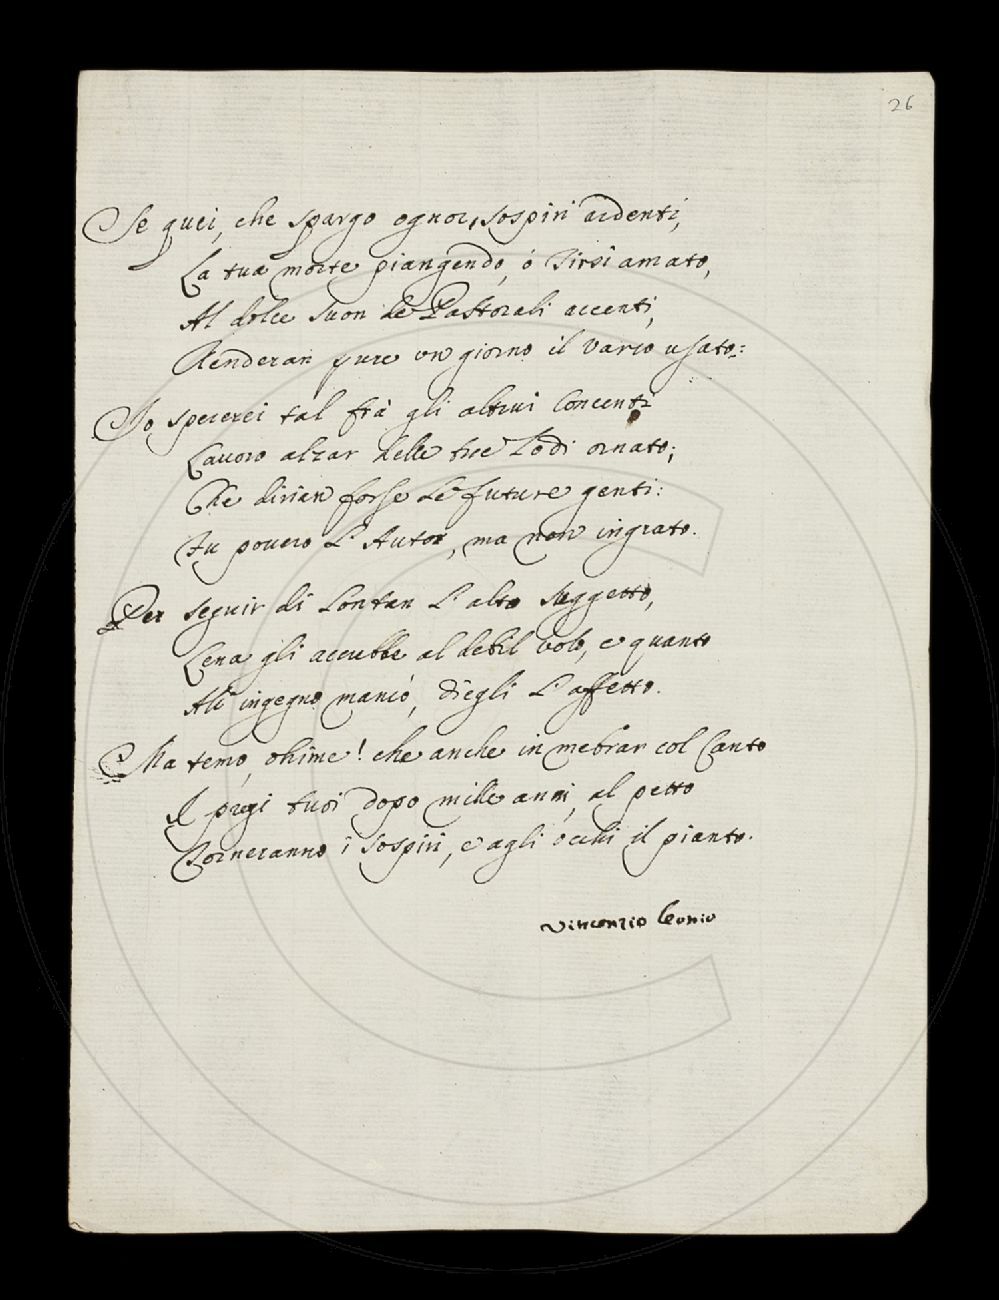 26
Se quei, che spargo ognor, sospiri ardenti,
La tua morte piangendo, ó Tirsi amato,
Al dolce suon de Pastorali accenti,
Renderan pure un giorno il vario usato:
Io spererei tal frà gli altrui Concenti
Lavoro alzar delle tue Lodi ornato;
Che dirian forse Le future genti:
Fu povero L'Autor, ma non ingrato.
Per seguir di Lontan L'alto suggetto,
Lena gli accrebbe al debil volo, e quanto
All'ingegno mancò, diegli L'affetto.
Ma temo, ohime! che anche in mebrar col Canto
I pregi tuoi dopo mille anni, al petto
Torneranno i sospiri, e agli occhi il pianto.
Vincenzio Leonio